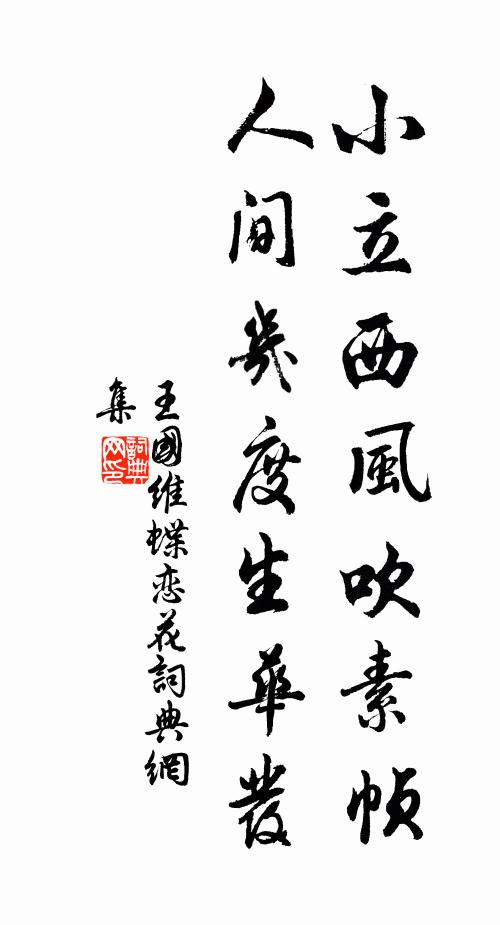 小立西風吹素幘
人间幾度生華發
王國維蝶恋花詞典網
集
詞典
网印